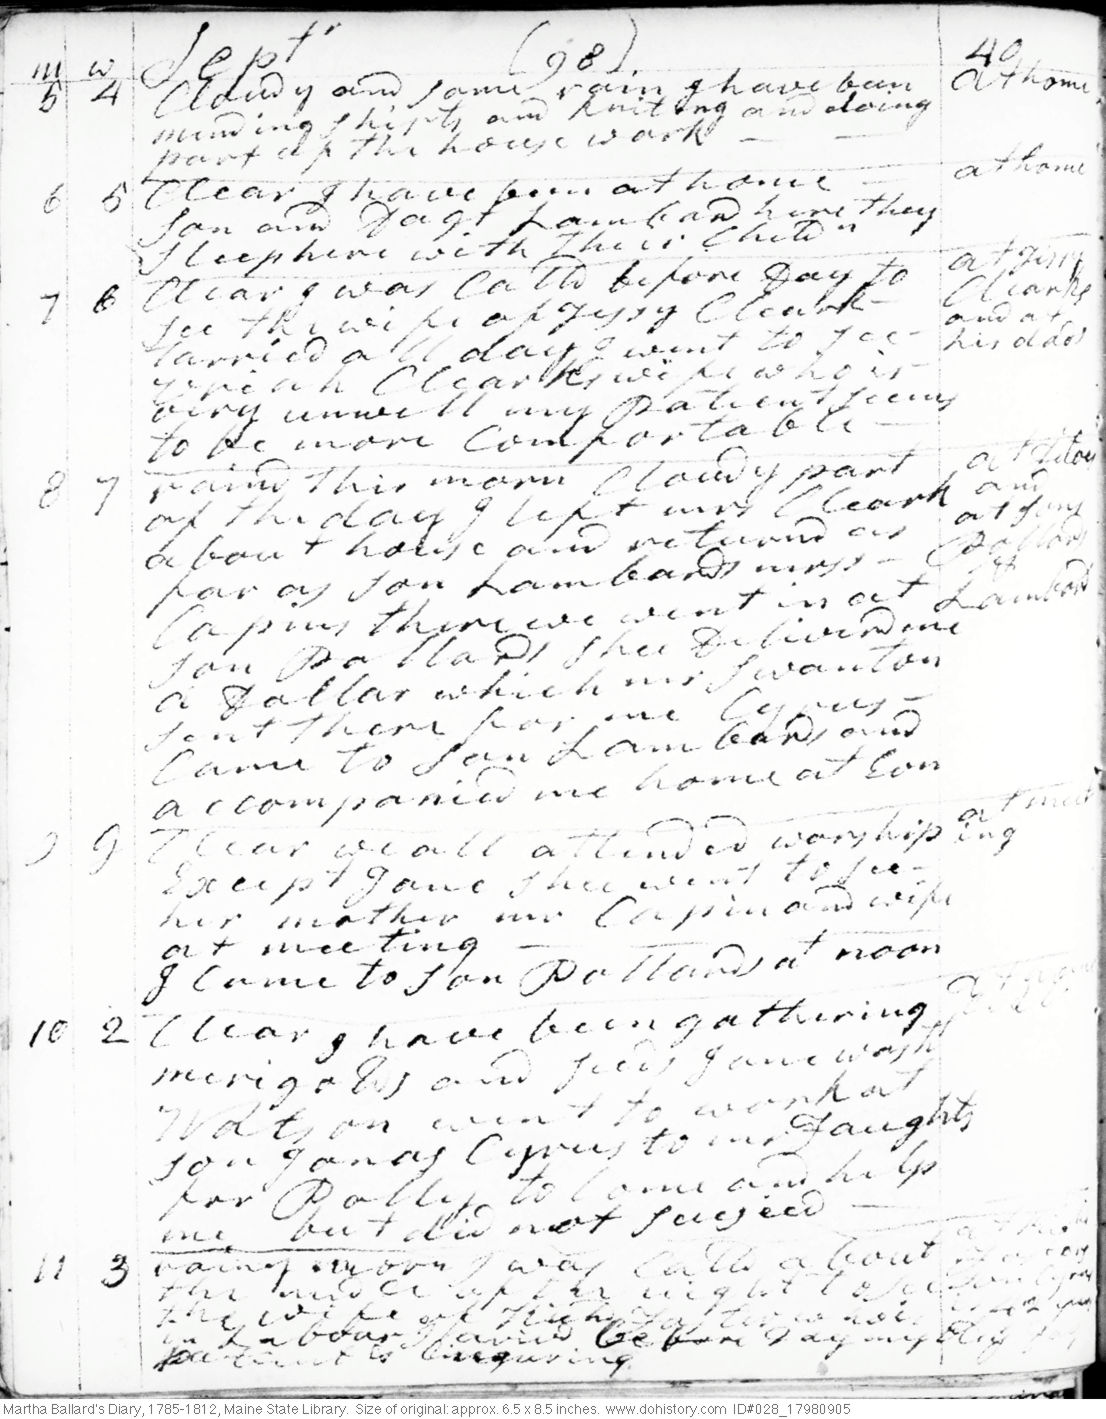 m w Sept^r (98) 40
5 4 Cloudy and some rain I have been at home
mending shifts and kniting and doing
part of the house work —
6 5 Clear I have been at home — at home
Son and Dagt Lambard here they
sleep here with their Child^n
7 6 Clear I was Calld before Day to at Jessy
see the wife of Jessy Cleark Clearks
tarried all day I went to see and at
Cleark^s wife who is his dads
very unwell my Patient seems
to be more Comfortable —
8 7 raind this morn Cloudy part at
of the day I left mrs Cleark and
about house and returnd as at sons
far as son Lambards mrss — Pollards
Capins there we went in at & Lambards
son Pollards shee Deliverd me
a Dollar which mr Swanton
sent there for me Cyrus —
Came to son Lambards and
accompanied me home at Eon
9 G Clear we all attended worship at meet
Except Jane shee went to see ing
her mother mr Capin and wife
at meeting —
I Came to son Pollards at noon
10 2 Clear I have been gathering
merigolds and seeds Jane washt
Watson went to work at
son Jonas Cyrus to mr Faughts
for Polly to Come and help
me but did not sucseed —
11 3 rainy morn I was Calld about
the midle of the night to see
the wife of who is
in Labour before Day my
patient is
Martha Ballard's Diary, 1785-1812, Maine State Library. Size of original: approx. 6.5 x 8.5 inches. www.dohistory.com ID#028_17980905